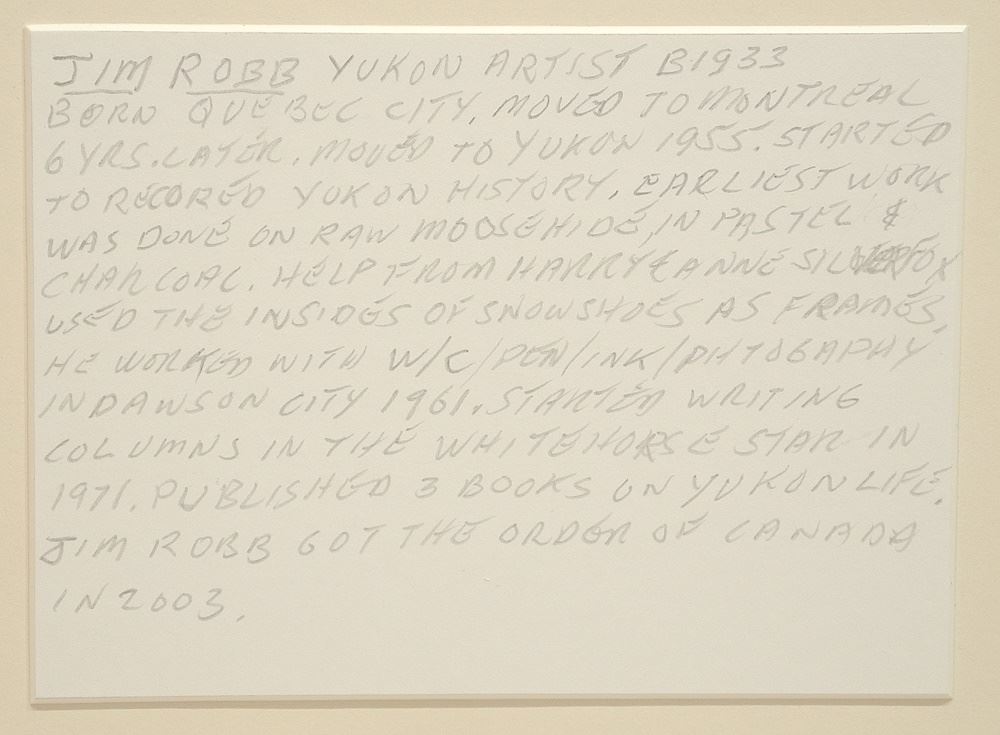 JIM ROBB YUKON ARTIST B1933
BORN QUEBEC CITY, MOVED TO MONTREAL
6 YRS. LATER. MOVED TO YUKON 1955. STARTED
TO RECORED YUKON HISTORY. EARLIEST WORK
WAS DONE ON RAW MOOSEHIDE, IN PASTEL &
CHARCOAL. HELP FROM HARRY & ANNE SILVERFOX
USED THE INSIDES OF SNOWSHOES AS FRAMES.
HE WORKED WITH W/C/PEN/INK/PHTOGAPHY
IN DAWSON CITY 1961. STARTED WRITING
COLUMNS IN THE WHITEHORSE STAR IN
1971. PUBLISHED 3 BOOKS ON YUKON LIFE.
JIM ROBB GOT THE ORDER OF CANADA
IN 2003.